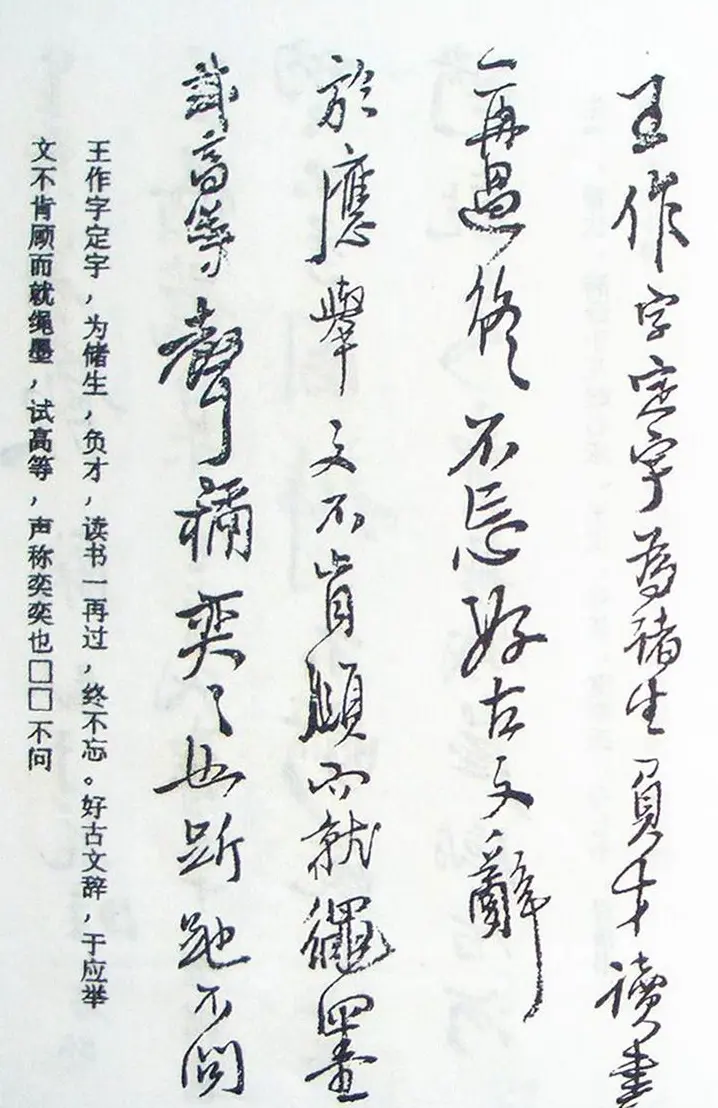 王作字定宇為禇生負才讀書
一再過終不忘好古文辭
於應舉文不肯顧而就繩墨
試高等聲稱奕〻也跅跎不問
王作字定字，为储生，负才，读书一再过，终不忘。好古文辞，于应举
文不肯顾而就绳墨，试高等，声称奕奕也□□不问